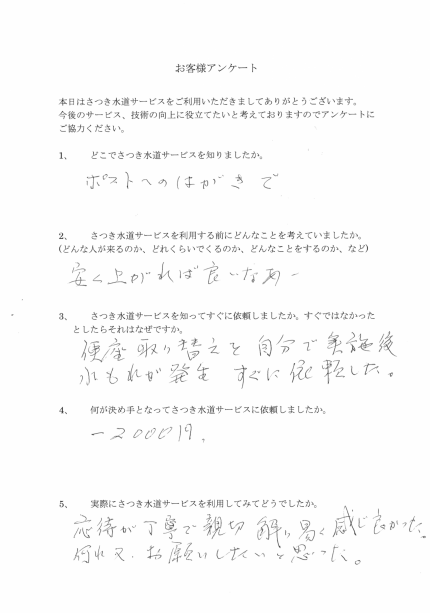 お客様アンケート
本日はさつき水道サービスをご利用いただきましてありがとうございます。
今後のサービス、技術の向上に役立てたいと考えておりますのでアンケートに
ご協力ください。
1、 どこでさつき水道サービスを知りましたか。
ポストへのはがきで
2、 さつき水道サービスを利用する前にどんなことを考えていましたか。
(どんな人が来るのか、どれくらいでくるのか、どんなことをするのか、など)
安く上がれば良いなあー
3、 さつき水道サービスを知ってすぐに依頼しましたか。すぐではなかった
としたらそれはなぜですか。
便座取り替えを自分で実施後
水もれが発生 すぐに依頼した。
4、 何が決め手となってさつき水道サービスに依頼しましたか。
－2000円、
5、 実際にさつき水道サービスを利用してみてどうでしたか。
応待が丁寧で親切 解り易く感じ良かった。
何れ又、お願いしたいと思った。